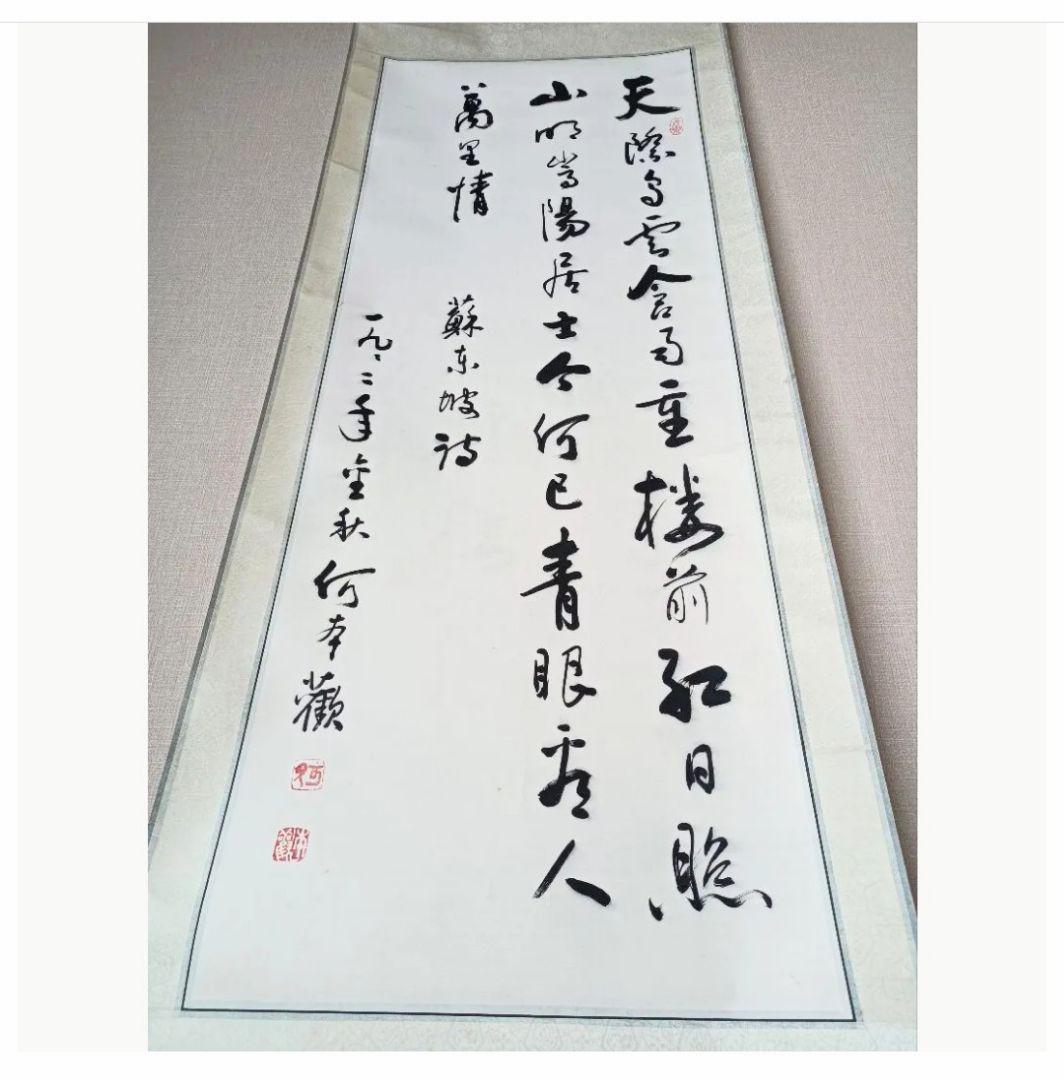 天際烏雲含雨重樓前紅日照
山明嵩陽居士今何已青眼看人
萬里情 蘇東坡詩
一九九二年金秋何本